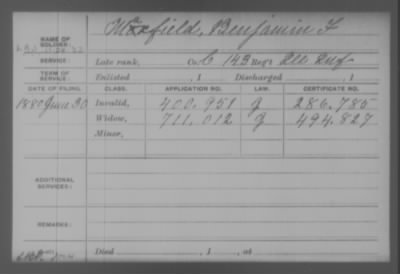 Maxfield, Benjamin F
NAME OF SOLDIER:
SERVICE: Late rank, Co. C 143 Reg't Ill Inf
TERM OF SERVICE: Enlisted , 1 Discharged , 1
DATE OF FILING. CLASS. APPLICATION NO. LAW. CERTIFICATE NO.
1880 June 30 Invalid, 400.951 g 286.785
Widow, 711.012 g 494.827
Minor,
ADDITIONAL SERVICES:
REMARKS:
Died , 1 , at